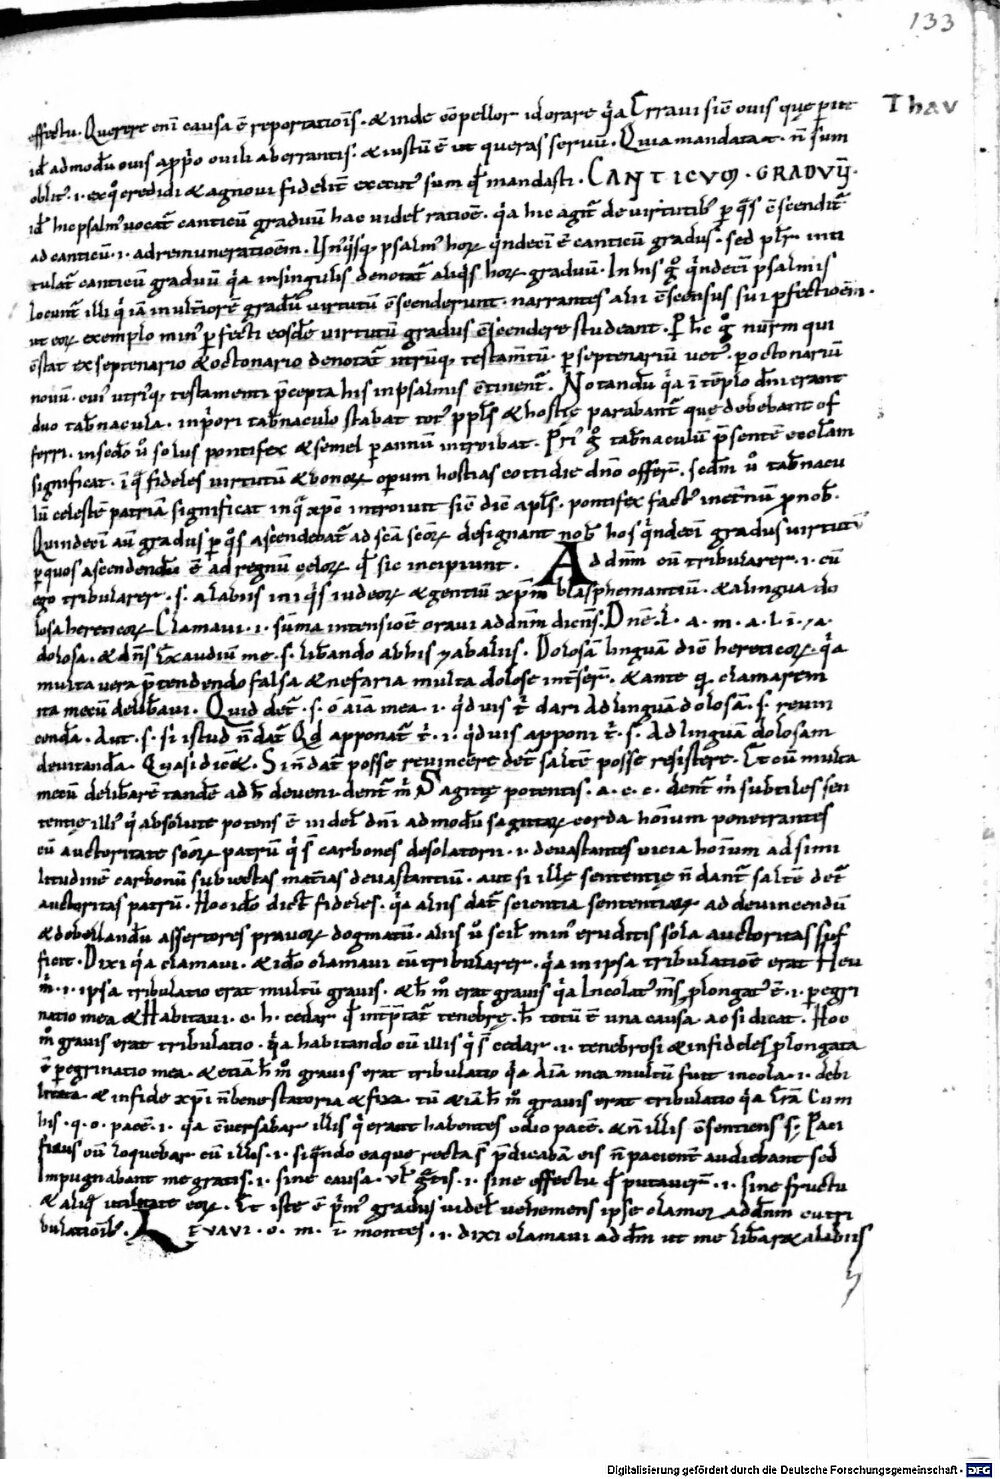 133
Thav
effectu. Querere eni causa ē reportatiōis. & inde cōpellor id orare q̇a Erravi sic̄ ovis quę periit
id ad modū ovis a pprio ovili aberrantis. & iustū ē ut queras servū. Quia mandata t. n̄ sum
oblit᾽. i. ex q̊ credidi & agnovi fidelit̄ execut᾽ sum qđ mandasti. CANTICVM. GRADVV̄.
id hic psalm᾽ vocat᷑ canticū graduū hac videl̄ ratiōe. q̇a hic agit᷑ de virtutib᾽ p q̊s c̄scendit᷑
ad canticū. i. ad remuneratiōem. psalm᾽ hoꝝ q̇ndeci ē canticū gradus. sed pl᷑r inti
tulat᷑ canticū graduū q̇a in singulis denotat᷑ aliq̇s hoꝝ graduū. In his g̊ q̇ndeci psalmis
locunt᷑ illi q̇ iā in ulteriorē gradū virtutū c̄scenderunt. narrantes alii c̄scensus sui pfectiōem.
ut eoꝝ exemplo min᾽ pfecti eosdē virtutū gradus c̄scendere studeant. P hc g̊ num̄ qui
c̄stat ex septenario & octonario denotat᷑ utrūq, testamtū. p septenariū vet᾽. p octonariū
novū. cui᾽ utri᾽q, testamenti p̄cepta his in psalmis c̄tinent᷑. Notandū q̇a ī tēplo dn̄i erant
duo tab̄nacula. in ṗori tab̄naculo stabat tot᾽ ppl̄s & hostię parabant᷑ quę debebant of
ferri. in sedo v̊ solus pontifex & semel p annum introibat. Pri᾽ g̊ tab̄naculū p̄sentē eccl̄am
significat. ī q̄ fideles virtutū & bonoꝝ operum hostias cottidie dn̄o offer̄. sedm v̊ tab̄nacu
lū celestē patriā significat in q̄ xp̄c introivit sic̄ dic̄ apl̄s. pontifex fact᾽ in etn̄ū p nob̄.
Quindeci aū gradus p q̊s ascendebat᷑ ad sc̄a sc̄oꝝ designant nob̄ hos q̇ndeci gradus virtutū
p quos ascendendū ē ad regnū cęloꝝ qđ sic incipiunt. Ad dn̄m cū tribularer. i. cū
ego tribularer. s. a labiis iniq̇s iudeoꝝ & gentiū xp̄m blasphemantiū. & a lingua do
losa hereticoꝝ Clamavi. i. sūma intensiōe oravi ad dn̄m dicn̄s. Dn̄e. l. a. m. a. l. i. / a.
dolosa. & dn̄s Exaudivit me. s. lib̄ando ab his a labiis. Dolosā linguā dic̄ hereticoꝝ. q̇a
multa vera p̄tendendo falsa & nefaria multa dolose inter̄. & ante q̄ clamarem
ita mecū delib̄avi. Quid det᷑. s. o aīa mea. i. q̇d vis t̄ dari Ad linguā dolosā. s. revin
cendā. Aut. s. si istud n̄ dat᷑ Qd apponat᷑ t̄. i. q̇d vis apponi t̄. s. Ad linguā dolosam
devitanda. Quasi dic̄. Si n̄ dat᷑ posse revincere det᷑ saltē posse resistere. Et cū multa
mecū delib̄arē tandē ad h̄ deveni. dent᷑ m̄ Sagitte potentis. a. c. c. dent᷑ m̄ subtiles sen
tentię illi᾽ q̇ absolute potens ē videl̄ dn̄i ad modū sagittaꝝ corda hoīum penetrantes
cū auctoritate sc̄oꝝ patrū q̇ s̄ carbones desolatorii. i. devastantes vicia hoīum ad simi
litudinē carbonū subiectas mat̄ias devastantiū. aut si illę sententię n̄ dant᷑ saltē det᷑
auctoritas patrū. Hoc ideo dict̄ fideles. q̇a aliis dat᷑ scientia sententiaꝝ ad devincendū
& debellandū assertores pravoꝝ dogmatū. aliis v̊ scil̄ min᾽ eruditis sola auctoritas suf
ficit. Dixi q̇a clamavi. & ideo clamavi cū tribularer. q̇a in ipsa tribulatiōe erat Heu
m̄. i. ipsa tribulatio erat multū gravis. & h̄ m̊ erat gravis q̇a Incolat᾽ m̄s plongat᾽ ē. i. pegri
natio mea & Habitavi. c. h. cedar qđ intp̄tat᷑ tenebrę. h̄ totū ē una causa ac si dicat. Hoc
m̊ gravis erat tribulatio. q̇a habitando cū illis q̇ s̄ cedar. i. tenebrosi & infideles plongata
ē pegrinatio mea. & etiā h̄ m̊ gravis erat tribulatio q̇a Aīa mea multū fuit incola. i. debi
litata. & in fide xp̄i n̄ bene statoria & fixa. tū & iā h̄ m̊ gravis erat tribulatio q̇a Cum
his. q. o. pacē. i. q̇a cv̄ersabar illis q̇ erant habentes odio pacē. & n̄ illis c̄sentiens s; Paci
ficus cū loquebar cū illis. i. si q̄ndo eaque recta s̄ p̄dicabā eis n̄ pacient᷑ audiebant sed
Impugnabant me gratis. i. sine causa. vl̄ gtis. i. sine effectu qđ putaver̄. i. sine fructu
& aliq̄ utilitate eoꝝ. Et iste ē ṗm᾽ gradus videl̄ vehemens ipse clamor ad dn̄m cū tri
bulatiōib᾽. LEVAVI. o. m. ī. montes. i. dixi clamavi ad dn̄m ut me lib̄aret a labiis
Digitalisierung gefördert durch die Deutsche Forschungsgemeinschaft - DFG